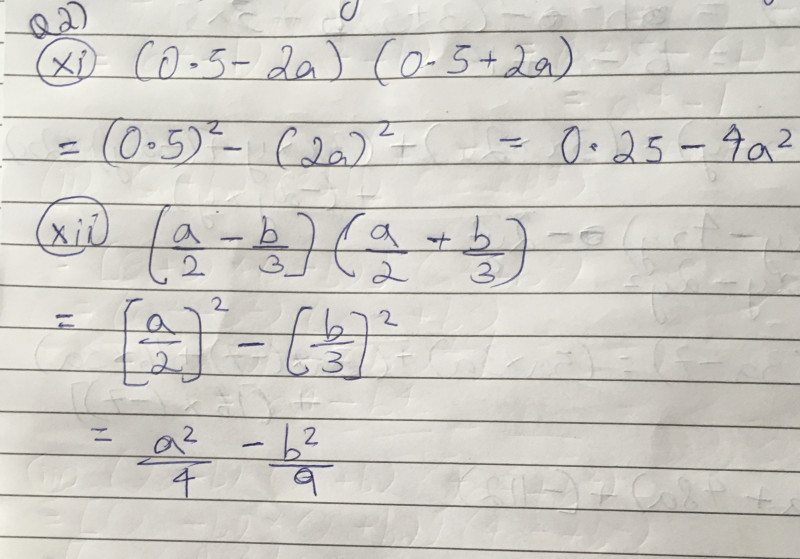 Q2)
xi) (0.5 - 2a) (0.5 + 2a)
= (0.5)² - (2a)² = 0.25 - 4a²
xii) [a/2 - b/3] (a/2 + b/3)
= [a/2]² - [b/3]²
= a²/4 - b²/9